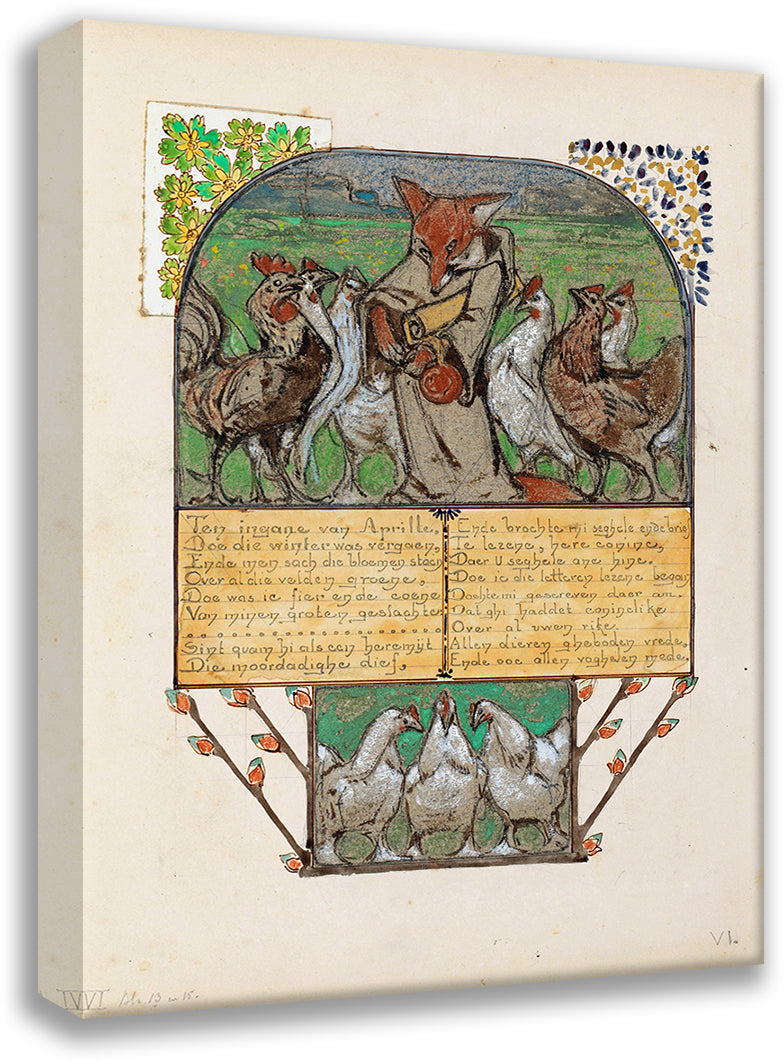 Ten ingane van Aprille,
Doe die winter was vergaen,
Ende men sach die bloemen staen
Over al die velden groene,
Doe was ic fier ende coene
Van minen groten geslachte
Sint quam hi als een heremijt
Die moordadighe dief,
Ende brochte mi seghele ende brief
Te lezene, here coninc,
Daer U seghele ane hinc.
Doe ic die letteren lezene began
Dochte mi gescreven daer an.
Dat ghi haddet coninclike
Over al uwen rike.
Allen dieren gheboden vrede,
Ende ooc allen voghelen mede.
VI.
IVVI Blz. 13 en 15.